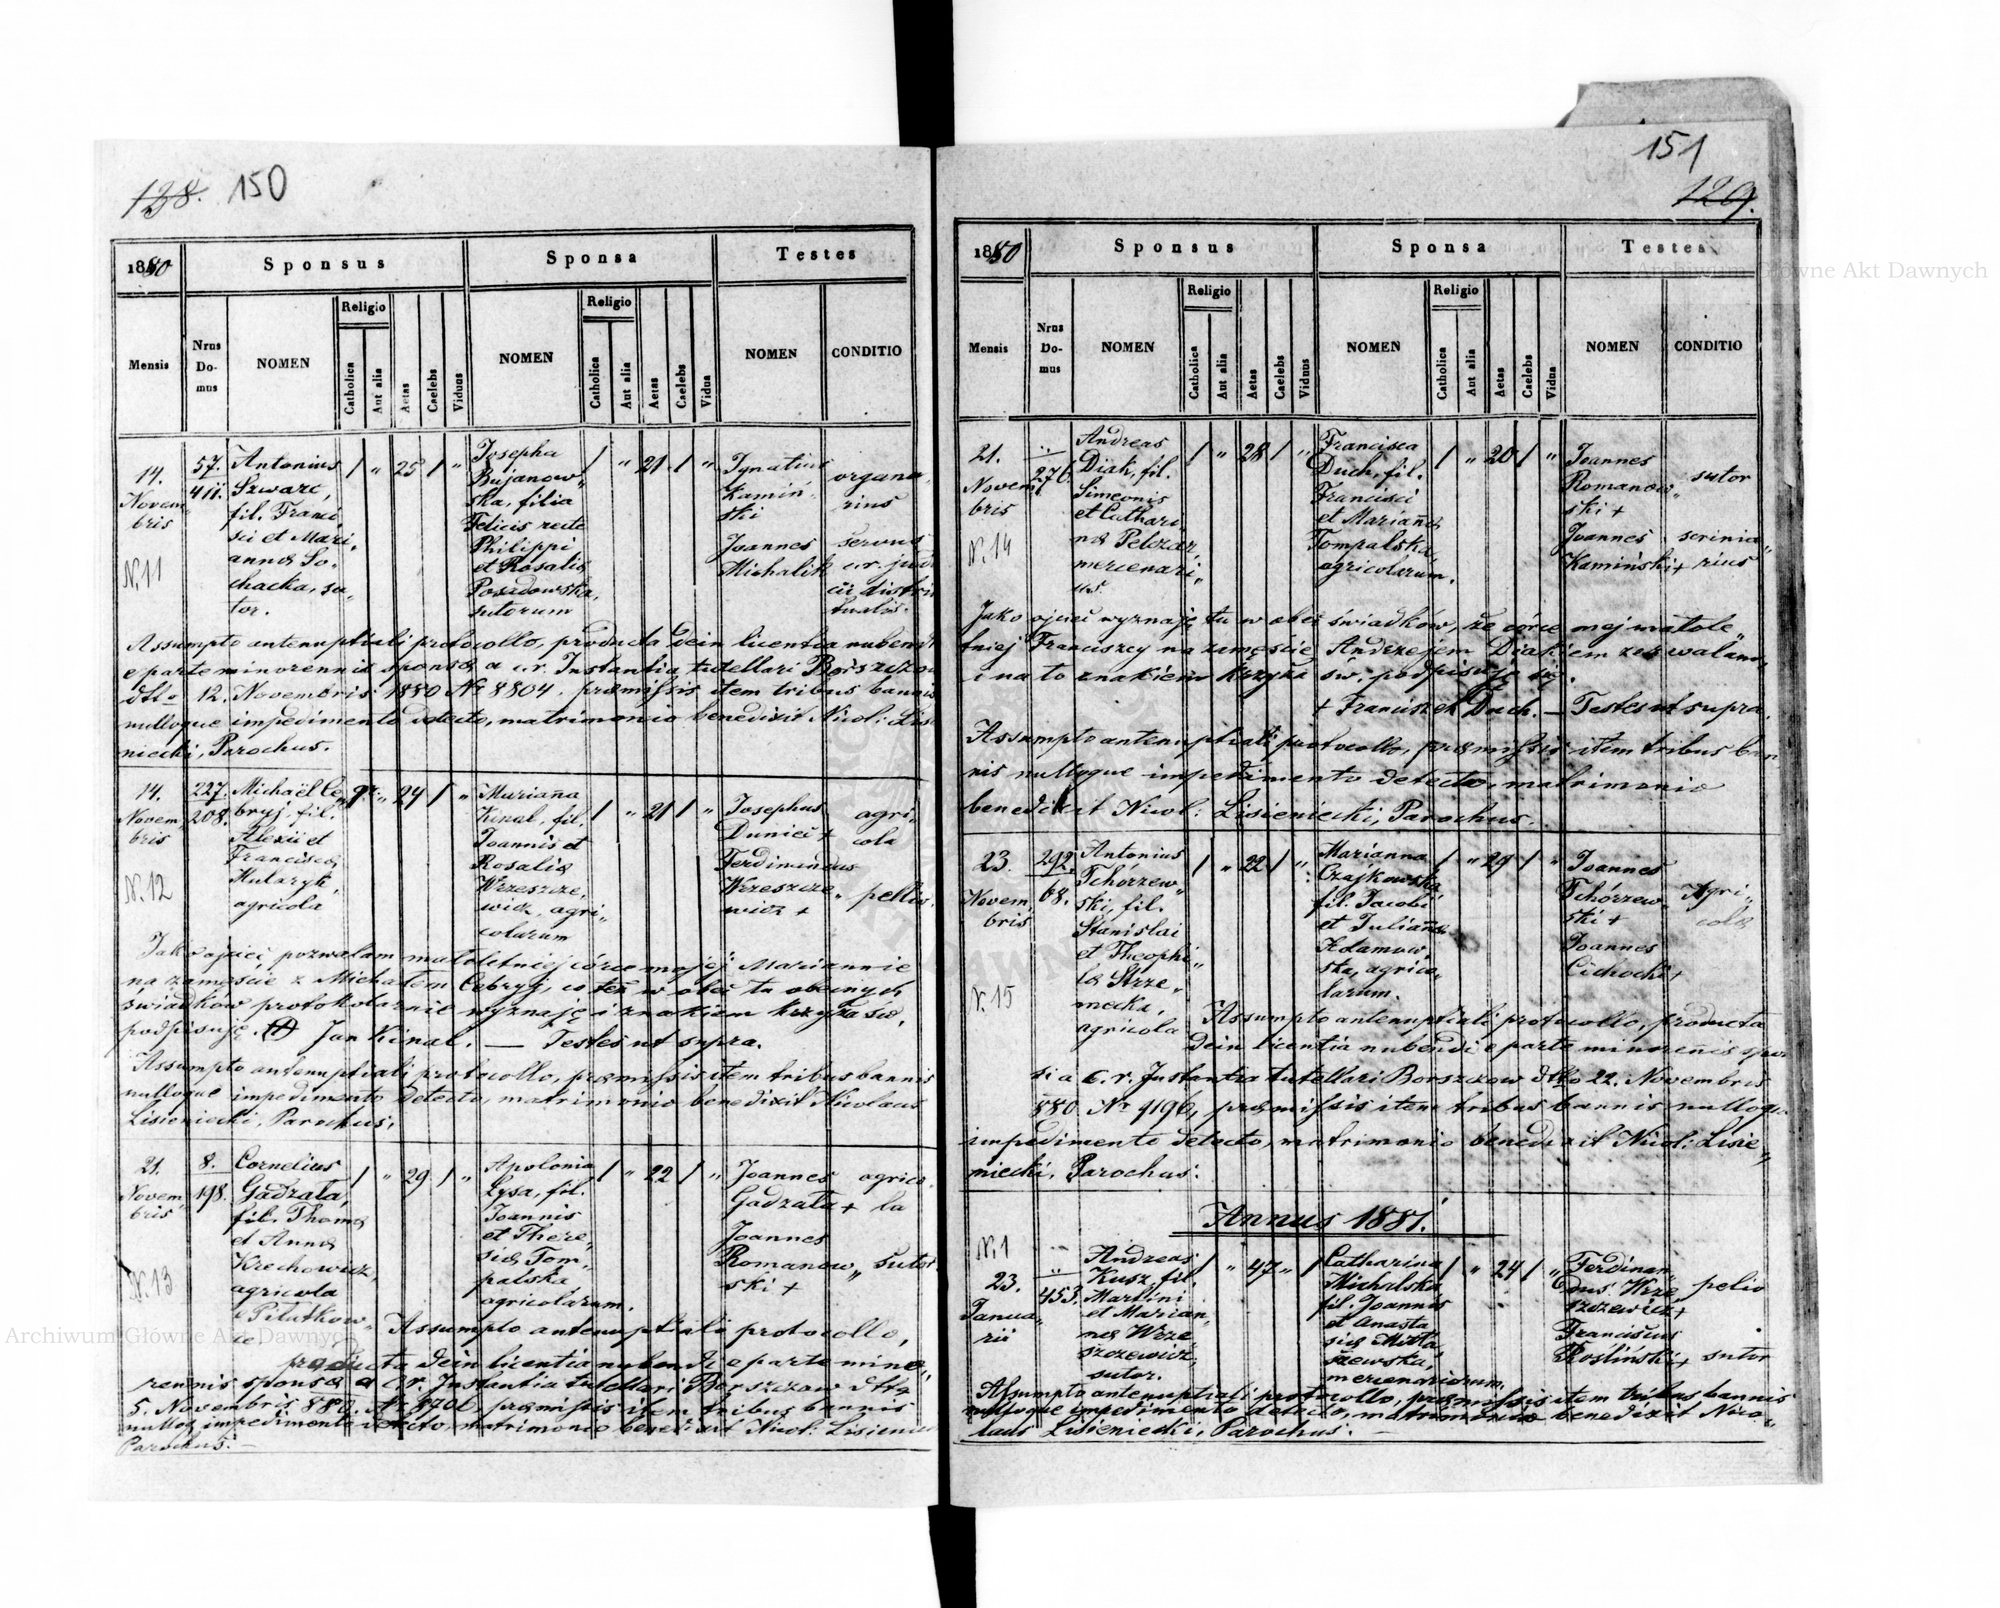 128. 150
1880
Sponsus
Sponsa
Testes
Mensis
Nrus Domus
NOMEN
Religio
Catholica
Aut alia
Aetas
Caelebs
Viduus
NOMEN
Religio
Catholica
Aut alia
Aetas
Caelebs
Vidua
NOMEN
CONDITIO
14.
Novem„
bris
N.11
57.
411.
Antonius
Szwarc,
fil. Franci„
sci et Mari„
annæ So„
chacka, su„
tor.
/ " 25 / "
Josepha
Bujanow„
ska, filia
Felicis recte
Philippi
et Rosaliæ
Posadowska,
sutorum
/ " 21 / "
Ignatius
Kamiń„
ski
Joannes
Michalik
organa„
rius
servus
c. r. judi
cii distri
tualis.
Assumpto antenuptiali protocollo, producta dein licentia nubendi
e parte minorennis sponsæ a c. r. Instantia tutellari Borszczow
dtto 12. Novembris 1880 Nr 8804. præmissis item tribus bannis
nulloque impedimento detecto, matrimonio benedixit Nicol: Lisie
niecki, Parochus.
14.
Novem„
bris
N.12
227.
208.
Michaël Ce„
bryj, fil.
Alexii et
Franciscæ
Hularyk,
agricola
" 24 / "
Mariana
Kinal, fil.
Joannis et
Rosaliæ
Wrzeszcze„
wicz, agri„
colarum
/ " 21 / "
Josephus
Dunieć +
Ferdinandus
Wrzeszcze„
wicz +
agri„
cola
pellio
Jako ojciec pozwalam małoletniej córce mojej Mariannie
na zamęście z Michałem Cebryj, co też w obec tu obecnych
świadków protokolarnie wyznaję i znakiem krzyża św.
podpisuję. (+) Jan Kinal. — Testes ut supra.
Assumpto antenuptiali protocollo, præmissis item tribus bannis
nulloque impedimento detecto, matrimonio benedixit Nicolaus
Lisieniecki, Parochus.
21.
Novem„
bris
N.13
8.
198.
Cornelius
Gadzała,
fil. Thomæ
et Annæ
Krechowicz,
agricola
e Piłatkow„
ce.
/ " 29 / "
Apolonia
Łysa, fil.
Joannis
et There„
siæ Tom„
palska,
agricolarum.
/ " 22 / "
Joannes
Gadzała +
Joannes
Romanow„
ski +
agrico„
la
sutor
Assumpto antenuptiali protocollo,
producta dein licentia nubendi e parte mino„
rennis sponsæ a c. r. Instantia tutellari Borszczow dtto
5. Novembris 880. Nr 8706, præmissis item tribus bannis
nulloq. impedimento detecto, matrimonio benedixit Nicol: Lisieniecki
Parochus. —
151
129.
1880
Sponsus
Sponsa
Testes
Mensis
Nrus Domus
NOMEN
Religio
Catholica
Aut alia
Aetas
Caelebs
Viduus
NOMEN
Religio
Catholica
Aut alia
Aetas
Caelebs
Vidua
NOMEN
CONDITIO
21.
Novem„
bris
N.14
276.
Andreas
Diak, fil.
Simeonis
et Cathari„
næ Pelczar,
mercenari„
us.
/ " 28 / "
Francisca
Duch, fil.
Francisci
et Marianæ
Tompalska,
agricolarum.
/ " 20 / "
Joannes
Romanow„
ski +
Joannes
Kamiński +
sutor
scrinia„
rius
Jako ojciec wyznaję tu w obec świadków, że córce mej małole„
tniej Franciszcy na zamęście Andrzejem Diakiem zezwalam,
i na to znakiem krzyża św. podpisuję się.
+ Franciszek Duch. — Testes ut supra.
Assumpto antenuptiali protocollo, præmissis item tribus ban
nis nulloque impedimento detecto, matrimonio
benedixit Nicol: Lisieniecki, Parochus.
23.
Novem
bris
N.15
292.
68.
Antonius
Tchórzew„
ski, fil.
Stanislai
et Theophi„
læ Strze„
mecka,
agricola
/ " 22 / "
Marianna
Czajkowska,
fil. Jacobi
et Julianæ
Adamow„
ska, agrico„
larum.
/ " 29 / "
Joannes
Tchórzew„
ski +
Joannes
Cichocki +
Agri„
colæ
Assumpto antenuptiali protocollo, producta
dein licentia nubendi e parte minorenis spon
si a C. r. Instantia tutellari Borszczow dtto 22. Novembris
880. Nr 9196, præmissis item tribus bannis nulloque
impedimento detecto, matrimonio benedixit Nicol: Lisie„
niecki, Parochus.
Annus 1881.
N.1
23.
Janua„
rii
453.
Andreas
Kusz, fil.
Martini
et Marian„
næ Wrze„
szczewicz,
sutor.
/ " 47 " /
Catharina
Michalska
fil. Joannis
et Anasta
siæ
szewska,
mercenariorum.
/ " 24 / "
Ferdinan„
dus Wrze„
szczewicz +
Franciscus
Rosliński +
pelio
sutor
Assumpto antenuptiali protocollo, præmissis item tribus bannis
nulloque impedimento detecto, matrimonio benedixit Nico„
laus Lisieniecki, Parochus. —
Archiwum Główne Akt Dawnych
Archiwum Główne Akt Dawnych